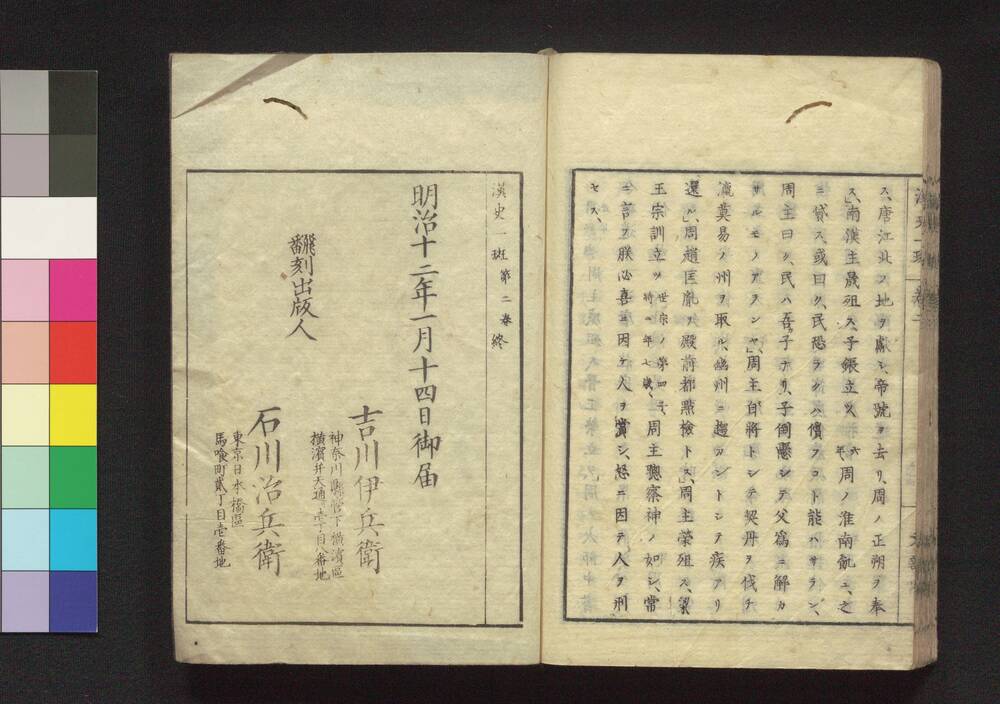 ス、唐江北ノ地ヲ獻シ、帝號ヲ去リ、周ノ正朔ヲ奉
ス、南漢主晟殂ス、子鋹立ツ、六年周ノ淮南飢ユ、之
ニ貸ス、或曰ク、民恐ラクハ償フコト能ハサラン、
周主曰ク、民ハ吾子ナリ、子倒懸シテ父爲ニ解カ
サルモノアランヤ、周主自將トシテ契丹ヲ伐チ
瀛莫易ノ州ヲ取ル、幽州ニ趨カントシテ疾アリ
還ル、周趙匡胤ヲ殿前都點檢トス、周主榮殂ス、梁
王宗訓立ツ世宗ノ第四子、時ニ年七歲、周主聰察神ノ如シ、常
ニ言フ朕必喜ニ因テ人ヲ賞シ、怒ニ因テ人ヲ刑
セス、
漢史一班第二卷終
明治十二年一月十四日御届
飜刻出版人
神奈川縣管下橫濱區
橫濱弁天通壹丁目八番地
吉川伊兵衛
東京日本橋區
馬喰町貳丁目壱番地
石川治兵衛